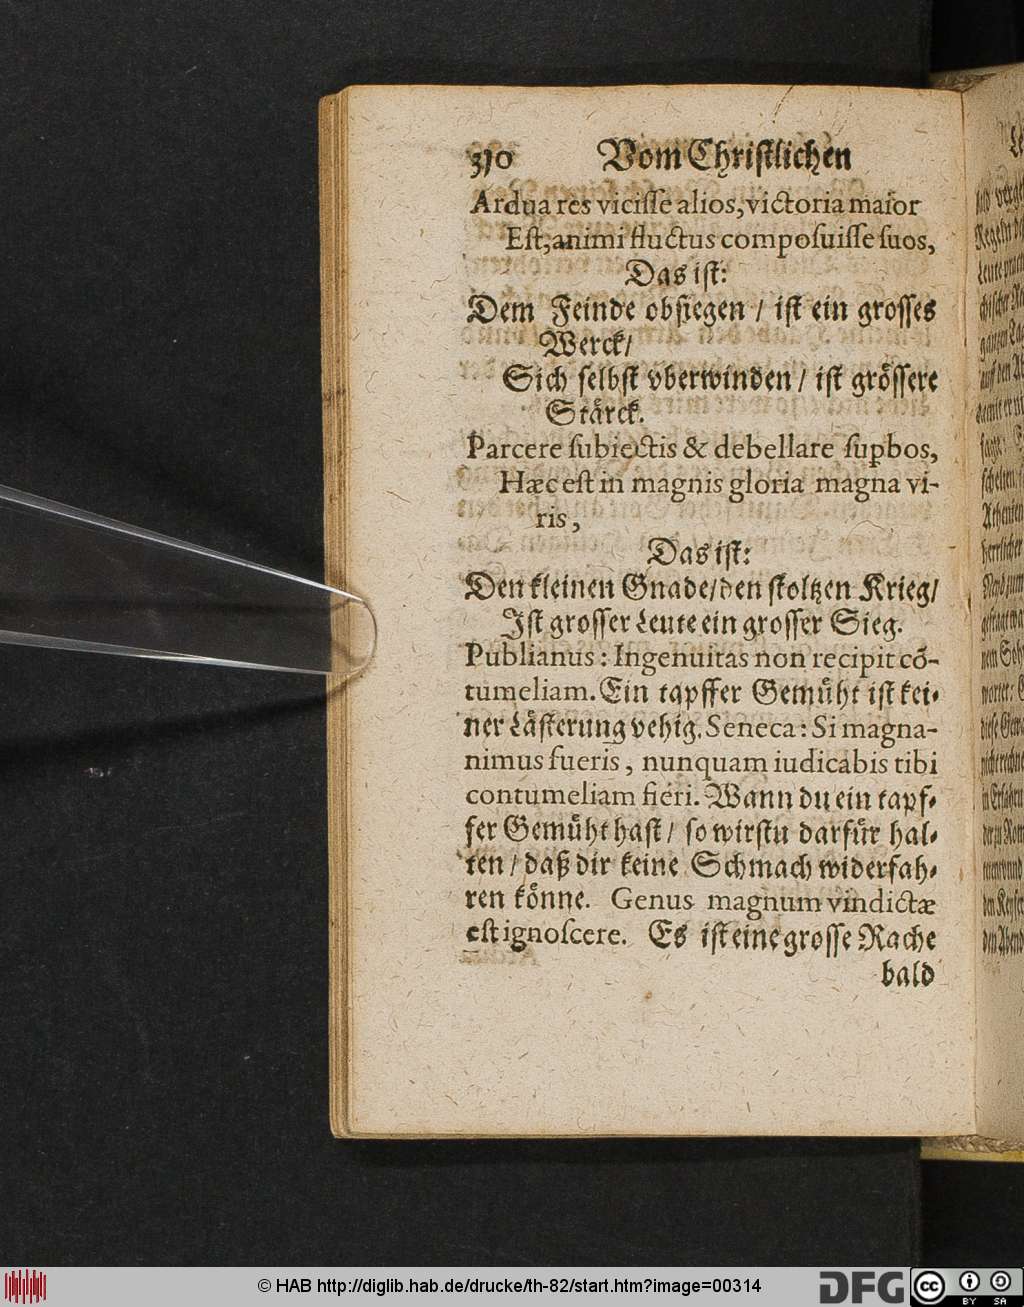 310 Vom Christlichen
Ardua res vicisse alios, victoria maior
Est, animi fluctus composuisse suos,
Das ist:
Dem Feinde obsiegen / ist ein grosses
Werck /
Sich selbst vberwinden / ist grössere
Stärck.
Parcere subiectis & debellare supbos,
Hæc est in magnis gloria magna vi-
ris,
Das ist:
Den kleinen Gnade / den stoltzen Krieg /
Ist grosser Leute ein grosser Sieg.
Publianus: Ingenuitas non recipit cõ-
tumeliam. Ein tapffer Gemüht ist kei-
ner Lästerung vehig. Seneca: Si magna-
nimus fueris, nunquam iudicabis tibi
contumeliam fieri. Wann du ein tapf-
fer Gemüht hast / so wirstu darfür hal-
ten / daß dir keine Schmach widerfah-
ren könne. Genus magnum vindictæ
est ignoscere. Es ist eine grosse Rache
bald
© HAB http://diglib.hab.de/drucke/th-82/start.htm?image=00314
DFG
cc BY SA